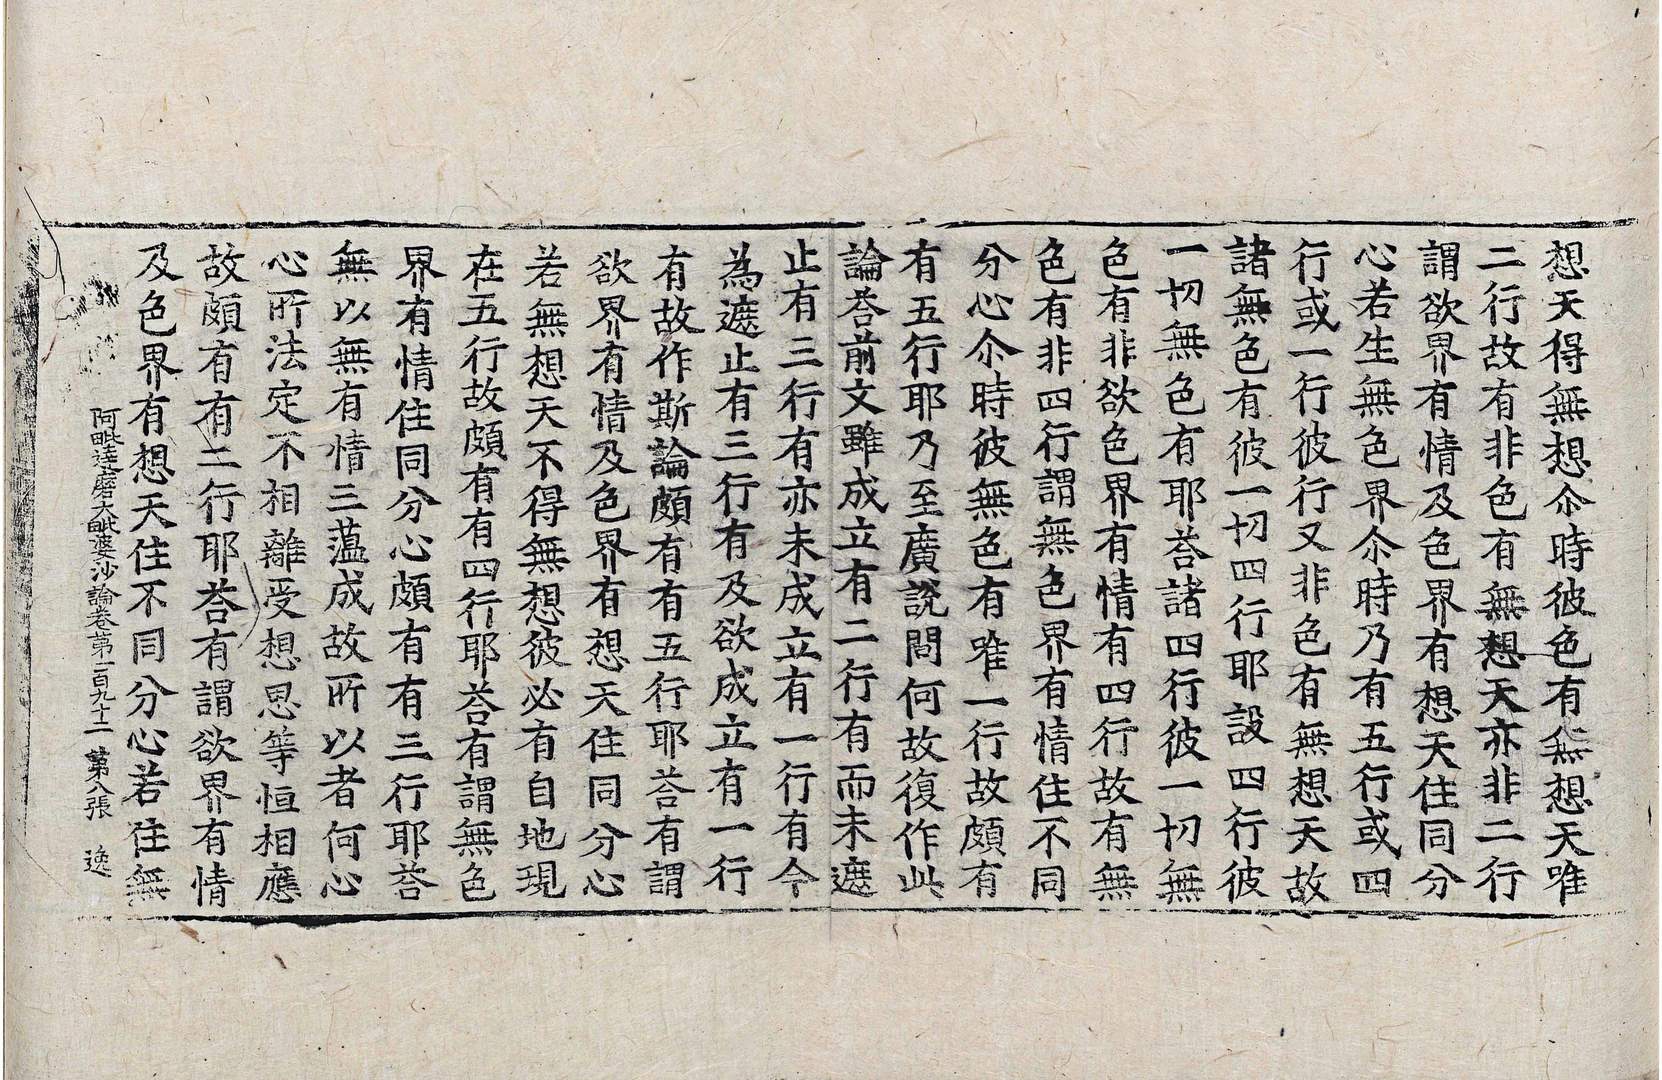 想天得無想尒時彼色有無想天唯
二行故有非色有無想天亦非二行
謂欲界有情及色界有想天住同分
心若生無色界尒時乃有五行或四
行或一行彼行又非色有無想天故
諸無色有彼一切四行耶設四行彼
一切無色有耶荅諸四行彼一切無
色有非欲色界有情有四行故有無
色有非四行謂無色界有情住不同
分心尒時彼無色有唯一行故頗有
有五行耶乃至廣說問何故復作此
論荅前文雖成立有二行有而未遮
止有三行有亦未成立有一行有今
為遮止有三行有及欲成立有一行
有故作斯論頗有有五行耶荅有謂
欲界有情及色界有想天住同分心
若無想天不得無想彼必有自地現
在五行故頗有有四行耶荅有謂無色
界有情住同分心頗有有三行耶荅
無以無有情三蕰成故所以者何心
心所法定不相離受想思等恒相應
故頗有有二行耶荅有謂欲界有情
及色界有想天住不同分心若住無
阿毗達磨大毗婆沙論卷第一百九十二 第八張 逸